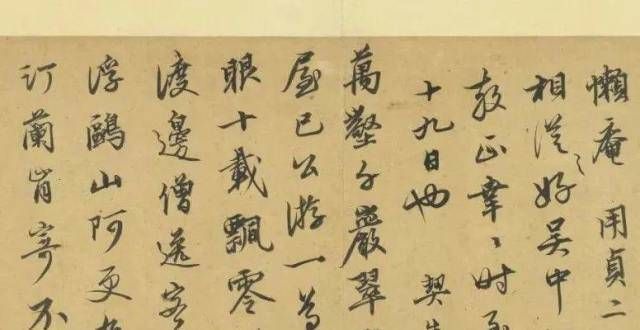 懶庵 用貞二
相從之好吳中
教正幸〻時
十九日也 契
萬壑千巖翠
屋已公游一
眼十載飄零
渡邊僧送客
浮鷗山阿更
訂蘭肯寄不